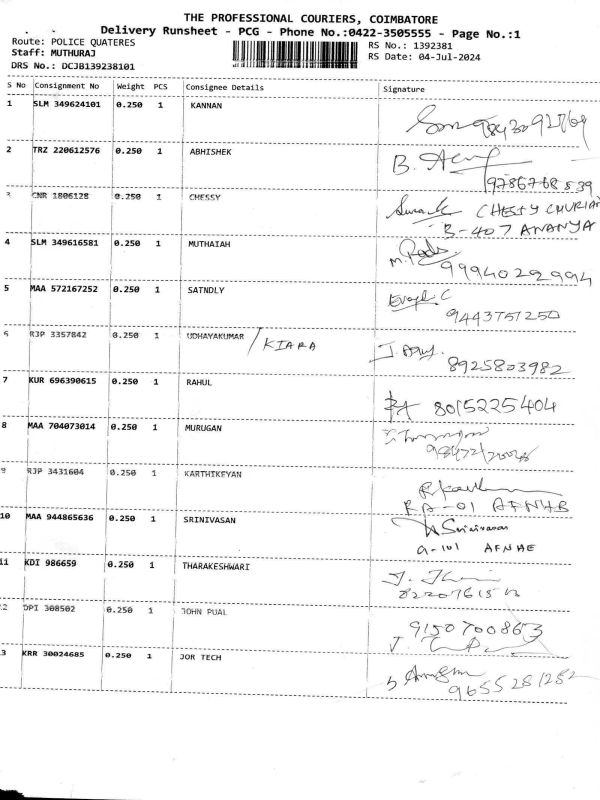 THE PROFESSIONAL COURIERS, COIMBATORE
Delivery Runsheet - PCG - Phone No.:0422-3505555 - Page No.:1
Route: POLICE QUATERES RS No.: 1392381
Staff: MUTHURAJ RS Date: 04-Jul-2024
DRS No.: DCJB139238101
S No Consignment No Weight PCS Consignee Details Signature
1 SLM 349624101 0.250 1 KANNAN
2 TRZ 220612576 0.250 1 ABHISHEK B.
9786768539
3 CNR 1806128 0.250 1 CHESSY CHESSY CHURIAN
B-407 ANANYA
4 SLM 349616581 0.250 1 MUTHAIAH
99940292994
5 MAA 572167252 0.250 1 SATNDLY
9443751250
6 RJP 3357842 0.250 1 UDHAYAKUMAR / KIARA
8925803982
7 KUR 696390615 0.250 1 RAHUL 8015225404
8 MAA 704073014 0.250 1 MURUGAN
9 RJP 3431604 0.250 1 KARTHIKEYAN
RA-01 AFNHB
10 MAA 944865636 0.250 1 SRINIVASAN Srinivasan
a-101 AFNHE
11 KDI 986659 0.250 1 THARAKESHWARI
12 DPI 308502 0.250 1 JOHN PUAL 9150700863
3 KRR 30024685 0.250 1 JOR TECH
9655281282